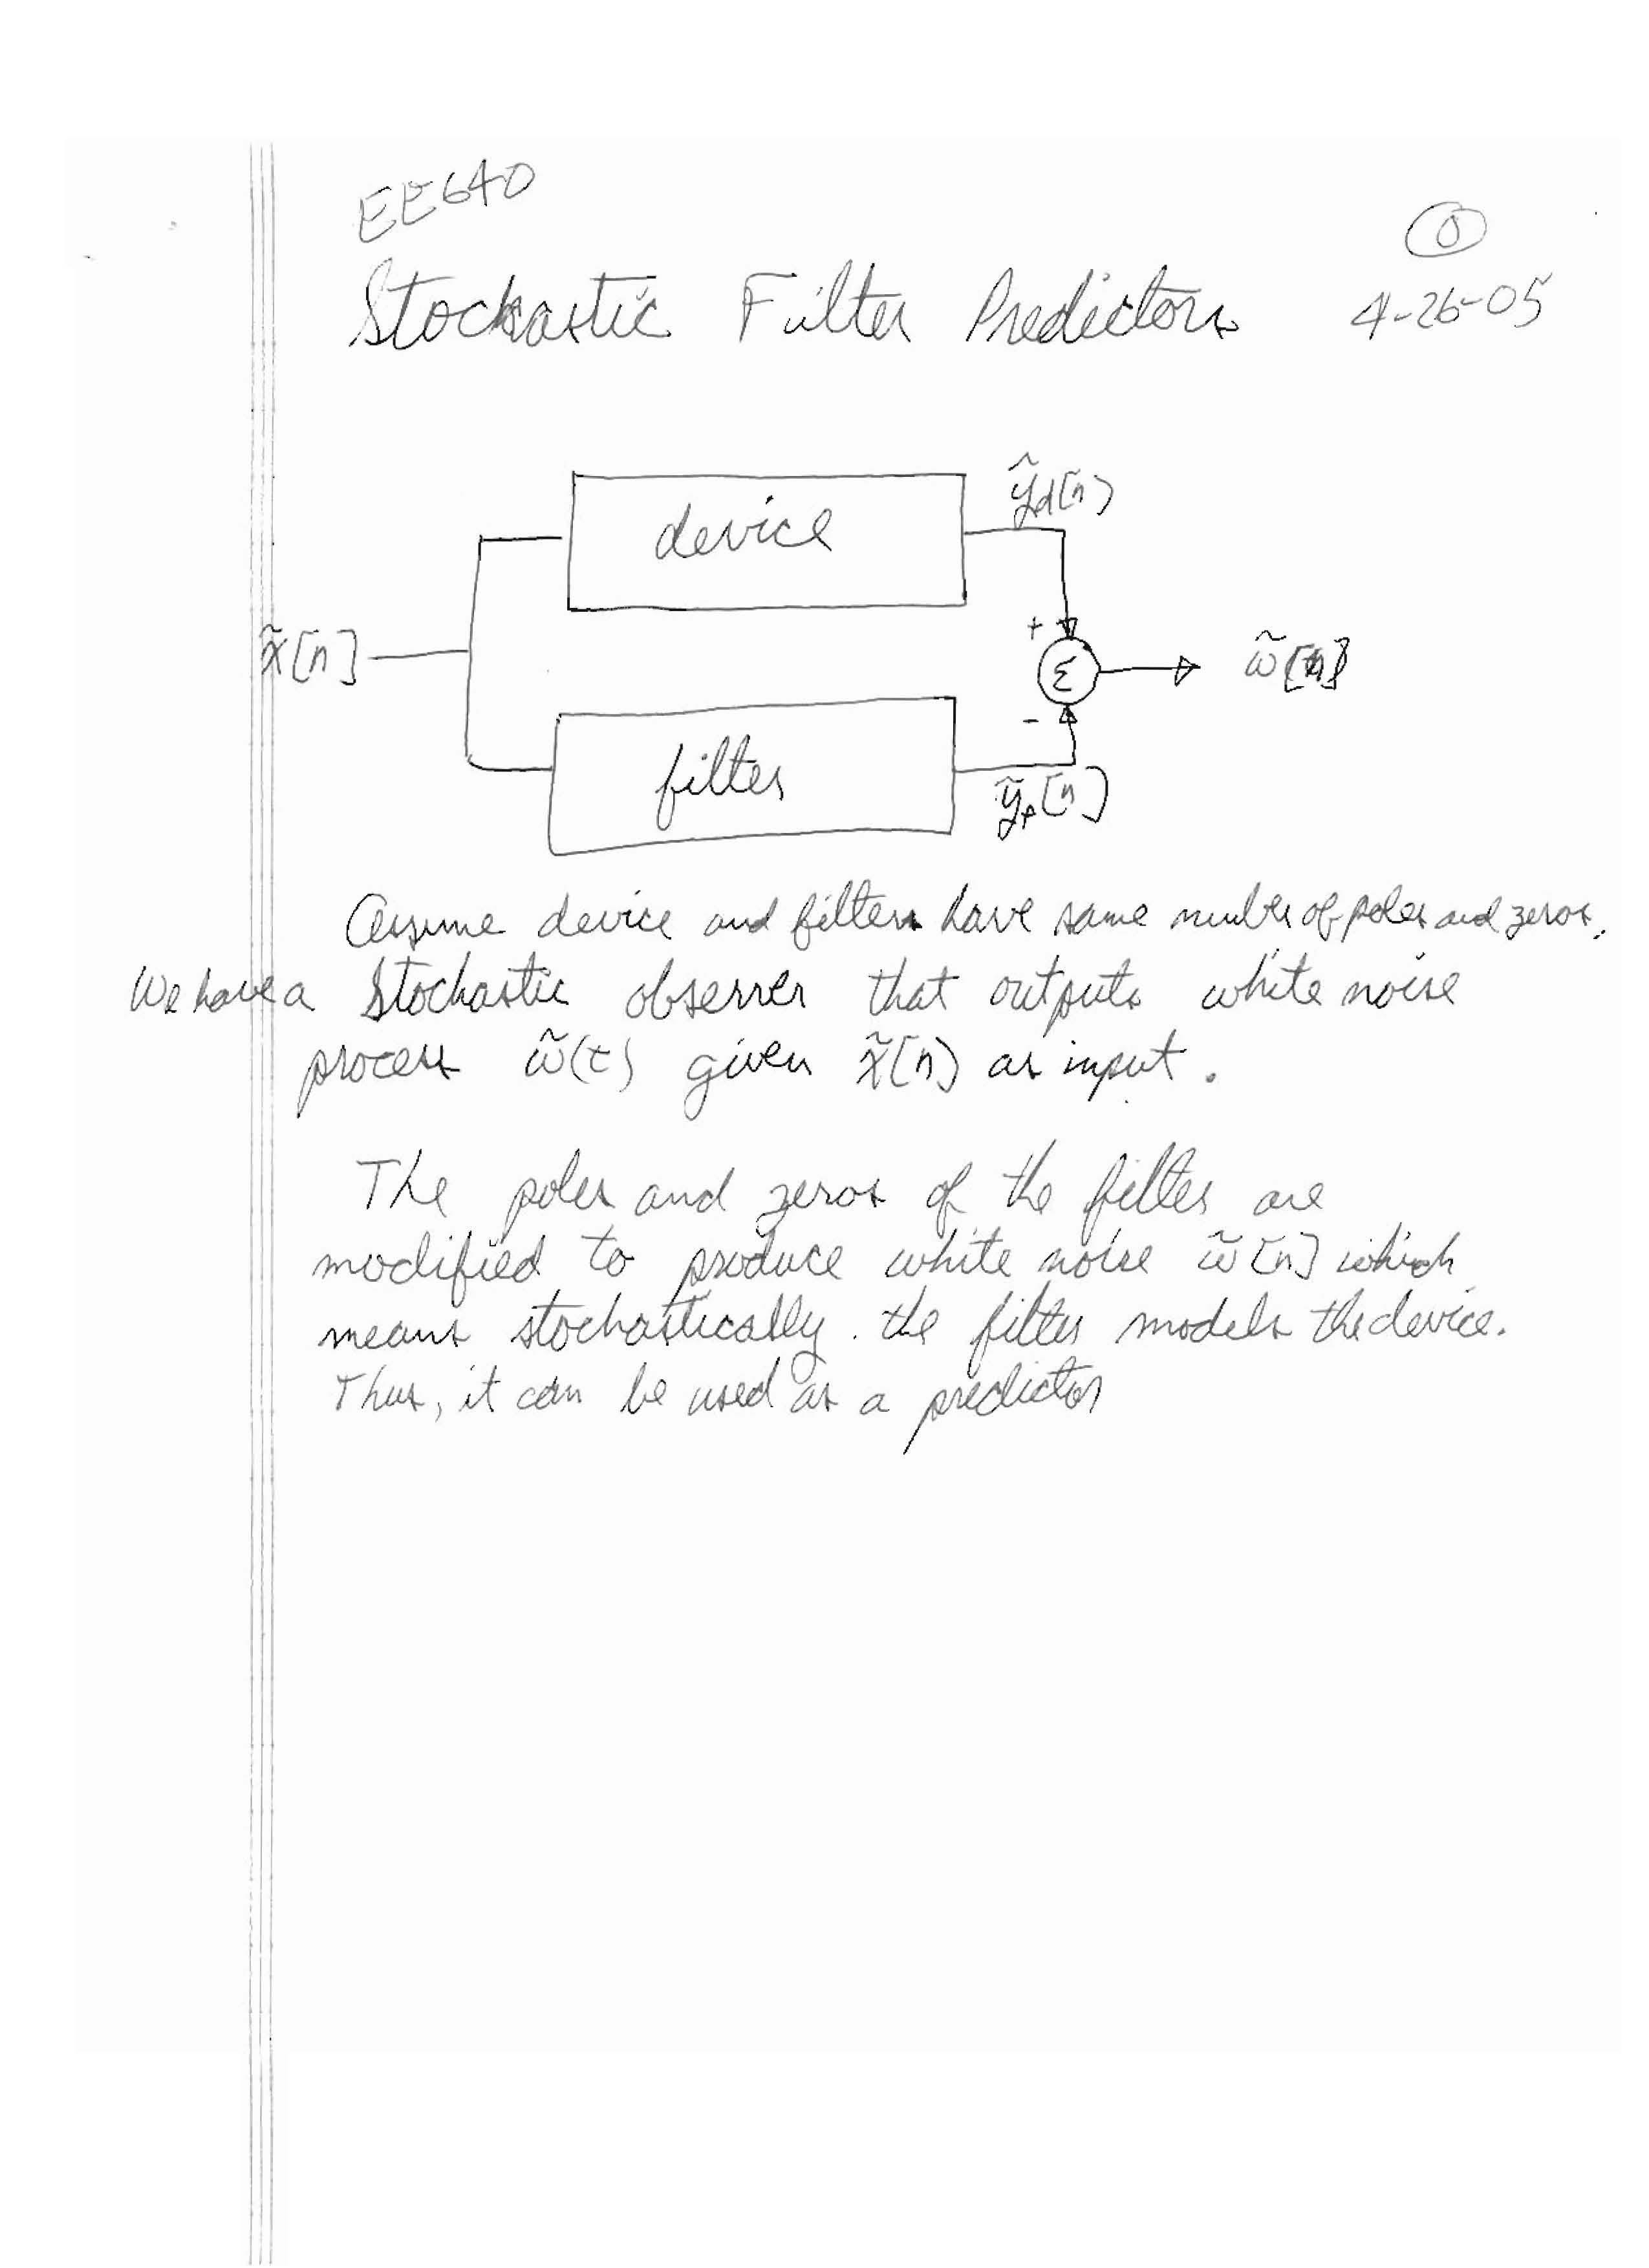 EE640
0
Stochastic Filter Predictors 4-26-05
device
ỹd[n]
+
x̃[n]
Σ
w̃[n]
-
filter
ỹf[n]
Assume device and filters have same number of poles and zeros.
We have a Stochastic observer that outputs white noise
process w̃(t) given x̃[n] as input.
The poles and zeros of the filter are
modified to produce white noise w̃[n] which
means stochastically the filter models the device.
Thus, it can be used as a predictor